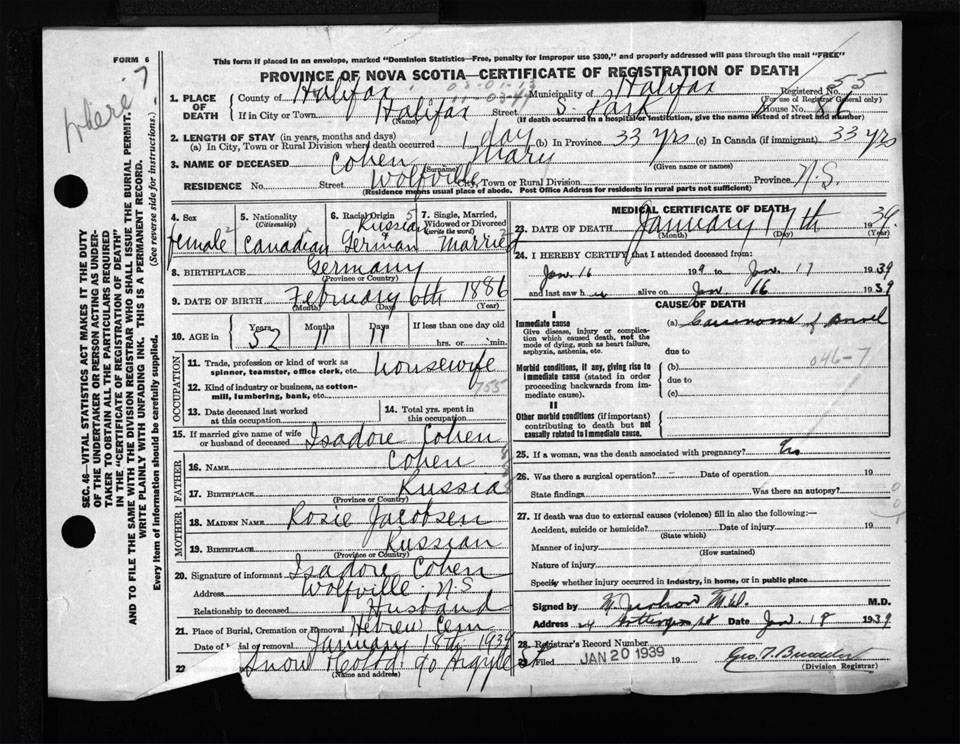 FORM 6
This form if placed in an envelope, marked "Dominion Statistics—Free, penalty for improper use $300," and properly addressed will pass through the mail "FREE"
PROVINCE OF NOVA SCOTIA—CERTIFICATE OF REGISTRATION OF DEATH
where?
SEC. 46—VITAL STATISTICS ACT MAKES IT THE DUTY
OF THE UNDERTAKER OR PERSON ACTING AS UNDER-
TAKER TO OBTAIN ALL THE PARTICULARS REQUIRED
IN THE "CERTIFICATE OF REGISTRATION OF DEATH"
AND TO FILE THE SAME WITH THE DIVISION REGISTRAR WHO SHALL ISSUE THE BURIAL PERMIT.
WRITE PLAINLY WITH UNFADING INK. THIS IS A PERMANENT RECORD.
Every item of information should be carefully supplied. (See reverse side for instructions.)
1. PLACE OF DEATH
County of Halifax Municipality of Halifax Registered No. 55
(For use of Registrar General only)
If in City or Town Halifax Street S. Park House No. 86
(Name) (If death occurred in a hospital or institution, give the name instead of street and number)
2. LENGTH OF STAY (in years, months and days)
(a) In City, Town or Rural Division where death occurred 1 day (b) In Province 33 yrs (c) In Canada (if immigrant) 33 yrs
3. NAME OF DECEASED Cohen Mary
(Surname) (Given name or names)
RESIDENCE No. Street Wolfville City, Town or Rural Division Province N.S.
(Residence means usual place of abode. Post Office Address for residents in rural parts not sufficient)
4. Sex female
5. Nationality (Citizenship) Canadian
6. Racial Origin Russian German
7. Single, Married, Widowed or Divorced (write the word) Married
8. BIRTHPLACE Germany
(Province or Country)
9. DATE OF BIRTH February 6th 1886
(Month) (Day) (Year)
10. AGE in Years 52 Months 11 Days 11 If less than one day old
hrs. or min.
OCCUPATION
11. Trade, profession or kind of work as spinner, teamster, office clerk, etc. Housewife
12. Kind of industry or business, as cotton-mill, lumbering, bank, etc. 755
13. Date deceased last worked at this occupation
14. Total yrs. spent in this occupation
15. If married give name of wife or husband of deceased Isadore Cohen
FATHER
16. NAME Cohen
17. BIRTHPLACE Russia
(Province or Country)
MOTHER
18. MAIDEN NAME Rosie Jacobsen
19. BIRTHPLACE Russian
(Province or Country)
20. Signature of informant Isadore Cohen
Address Wolfville N.S
Relationship to deceased Husband
21. Place of Burial, Cremation or Removal Hebrew Cem
Date of burial or removal January 18th 1939
22 Snow 90 Argyle St
(Name and address)
MEDICAL CERTIFICATE OF DEATH
23. DATE OF DEATH January 17th 1939.
(Month) (Day) (Year)
24. I HEREBY CERTIFY that I attended deceased from:
Jan. 16 1939 to Jan. 17 1939
and last saw her alive on Jan 16 1939
CAUSE OF DEATH
I
Immediate cause
Give disease, injury or complication which caused death, not the mode of dying, such as heart failure, asphyxia, asthenia, etc.
(a) Carcinoma of bowel
due to
Morbid conditions, if any, giving rise to immediate cause (stated in order proceeding backwards from immediate cause).
(b) 046-7
due to
(c)
II
Other morbid conditions (if important) contributing to death but not causally related to immediate cause.
25. If a woman, was the death associated with pregnancy? No
26. Was there a surgical operation? Date of operation 19
State findings Was there an autopsy?
27. If death was due to external causes (violence) fill in also the following:—
Accident, suicide or homicide? Date of injury 19
(State which)
Manner of injury
(How sustained)
Nature of injury
Specify whether injury occurred in industry, in home, or in public place
Signed by M.D. M.D.
Address St Date Jan. 18 1939
28. Registrar's Record Number
29. Filed JAN 20 1939 19
(Division Registrar)